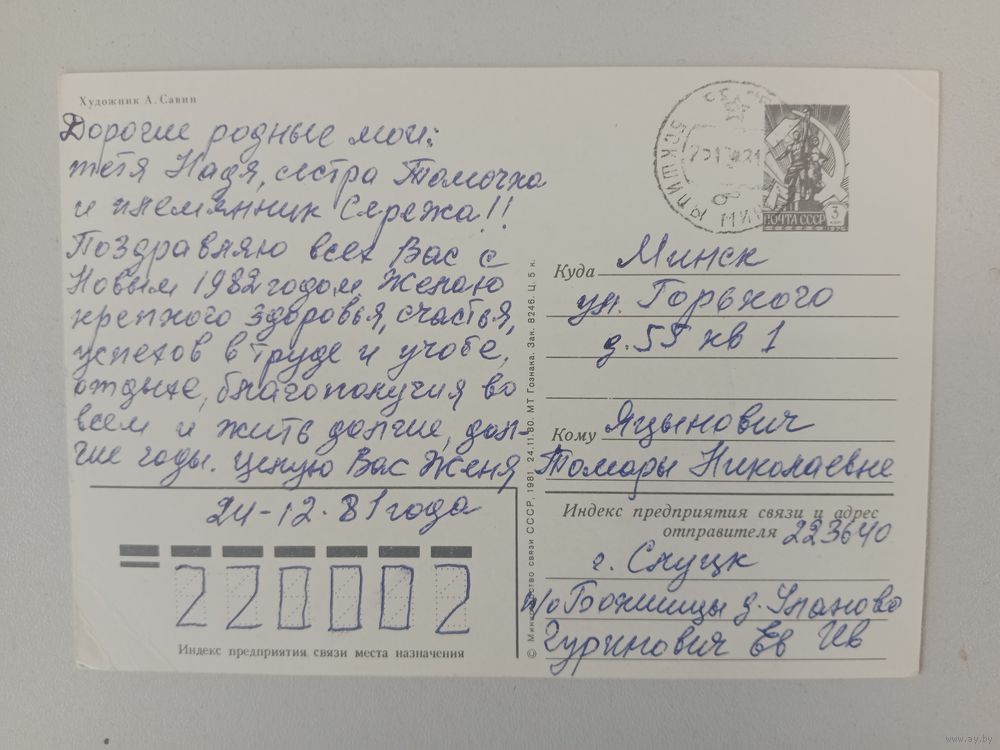 Художник А. Савин
Дорогие родные мои:
тетя Надя, сестра Томочка
и племянник Сережа!!
Поздравляю всех Вас с
Новым 1982 годом Желаю
крепкого здоровья, счастья,
успехов в труде и учобе,
отдыхе, благополучия во
всем и жить долгие, дол-
гие годы. целую Вас Женя
24-12-81 года
220002
Индекс предприятия связи места назначения
© Министерство связи СССР, 1981. 24.11.80. МТ Гознака. Зак. 8246. Ц. 5 к.
БОКШИЦЫ МИН
ПОЧТА СССР
3
1976
Куда Минск
ул. Горького
д. 55 кв 1
Кому Яцынович
Томары Николаевне
Индекс предприятия связи и адрес
отправителя 223640
г. Слуцк
п/о Бокшицы д. Уланово
Гуринович Ев Ив
www.ay.by